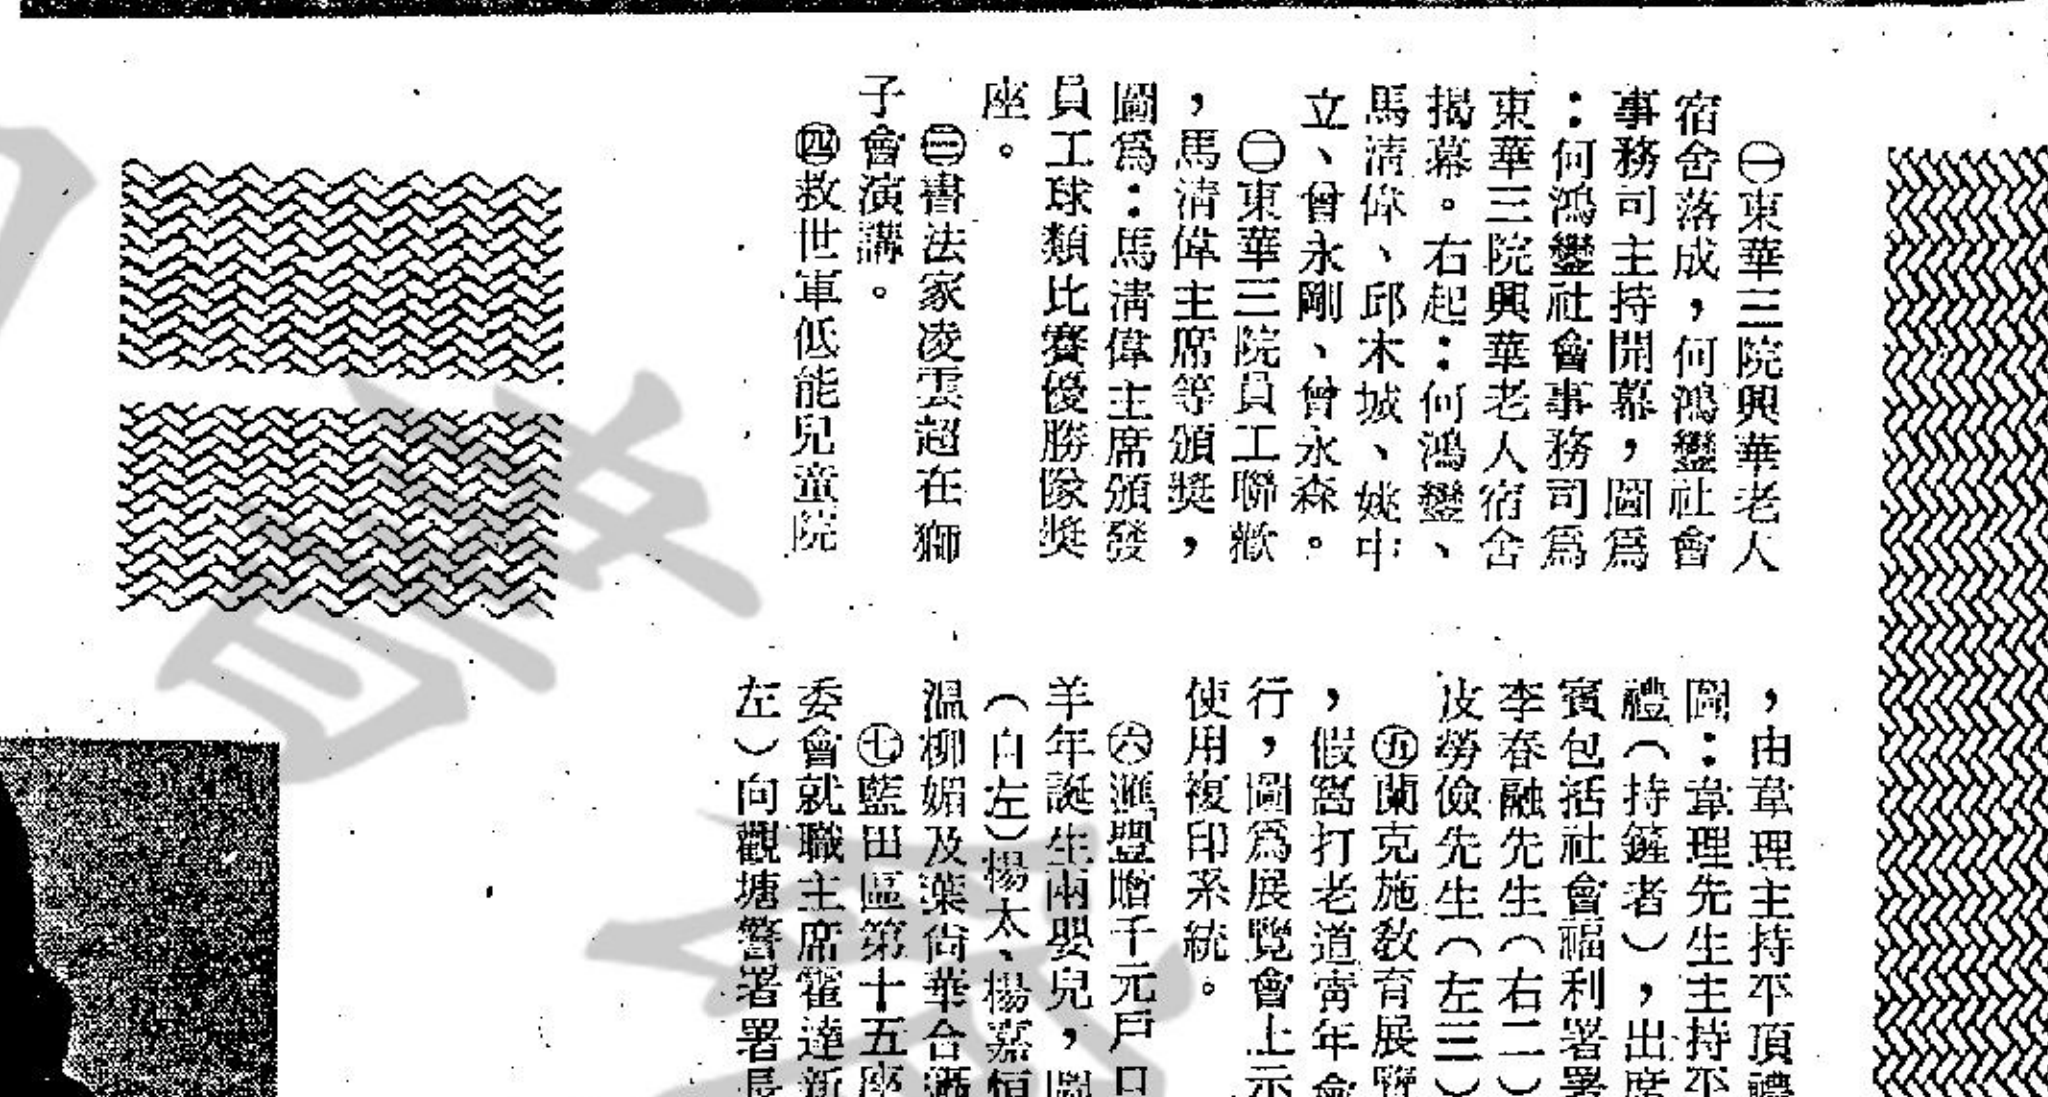 ㊀東華三院興華老人
宿舍落成，何鴻鑾社會
事務司主持開幕，圖爲
：何鴻鑾社會事務司爲
東華三院興華老人宿舍
揭幕。右起：何鴻鑾、
馬清偉、邱木城、姚中
立、曾永剛、曾永森。
㊁東華三院員工聯歡
，馬清偉主席等頒獎，
圖爲：馬清偉主席頒發
員工球類比賽優勝隊獎
座。
㊂書法家凌雲超在獅
子會演講。
㊃救世軍低能兒童院
，由韋理主持平頂禮
圖：韋理先生主持平
禮（持鏟者），出席
賓包括社會福利署署
李春融先生（右二）
皮勞儉先生（左三）
㊄蘭克施敎育展覽
，假窩打老道靑年會
行，圖爲展覽會上示
使用複印系統。
㊅滙豐贈千元戶口
羊年誕生兩嬰兒，圖
（自左）楊太、楊嘉恒
溫柳媚及葉尙華合
㊆藍田區第十五座
委會就職主席霍達新
左）向觀塘警署署長